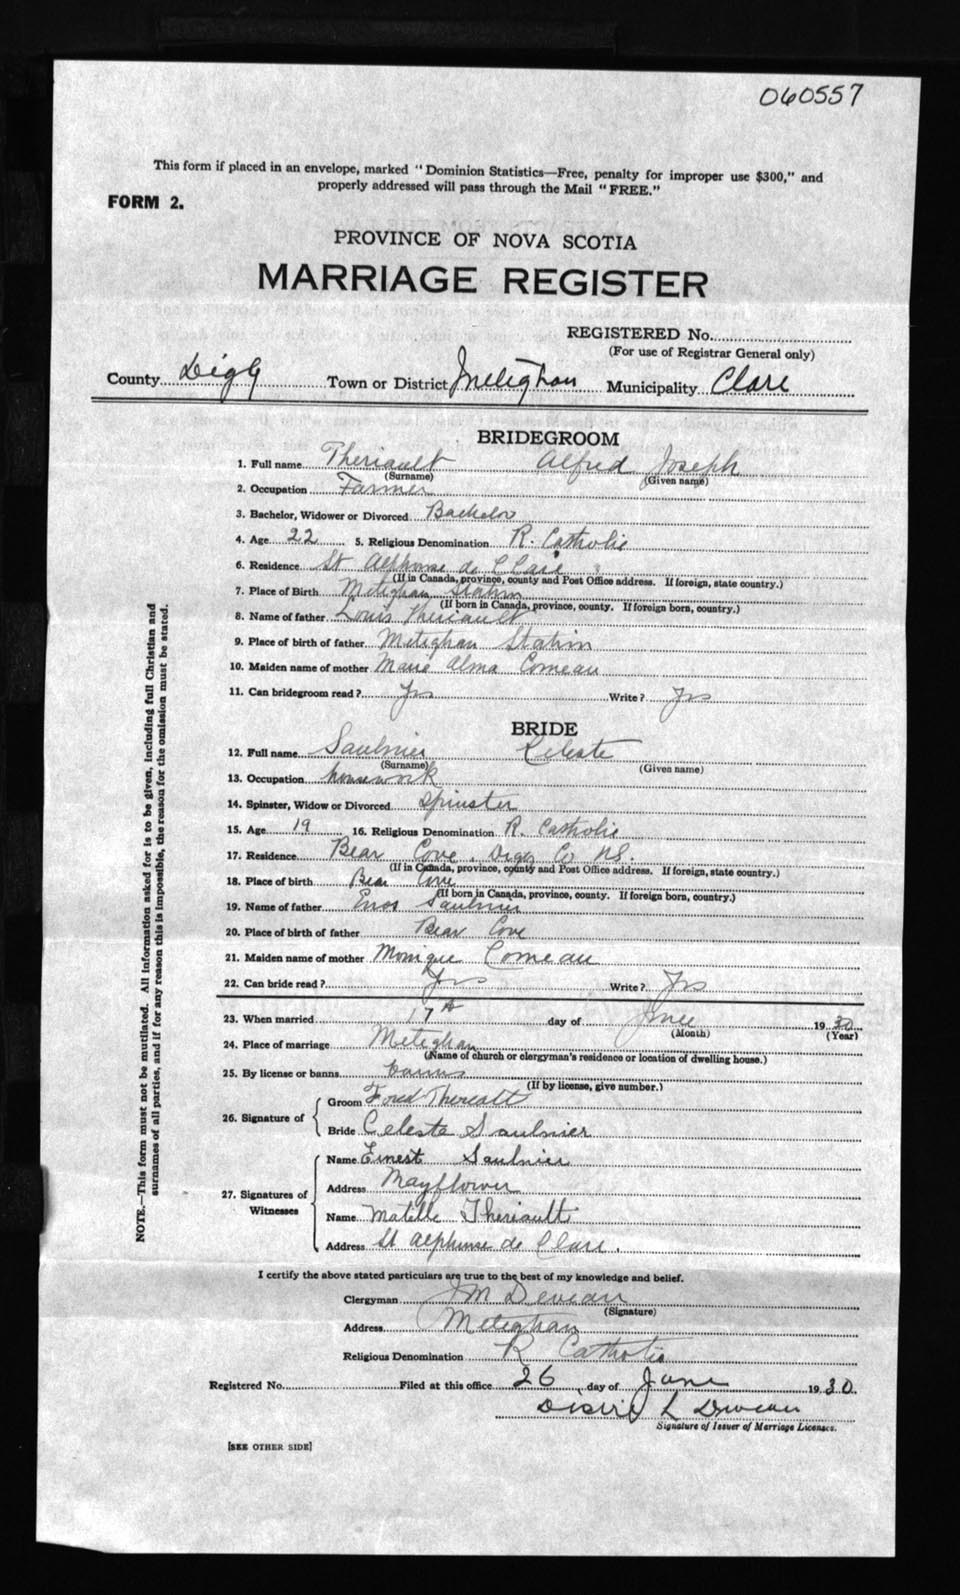 060557
This form if placed in an envelope, marked "Dominion Statistics—Free, penalty for improper use $300," and
properly addressed will pass through the Mail "FREE."
FORM 2.
PROVINCE OF NOVA SCOTIA
MARRIAGE REGISTER
REGISTERED No.
(For use of Registrar General only)
County Digby Town or District Meteghan Municipality Clare
BRIDEGROOM
1. Full name Theriault Alfred Joseph
(Surname) (Given name)
2. Occupation Farmer
3. Bachelor, Widower or Divorced Bachelor
4. Age 22 5. Religious Denomination R. Catholic
6. Residence St Alphonse de Clare
(If in Canada, province, county and Post Office address. If foreign, state country.)
7. Place of Birth Meteghan Station
(If born in Canada, province, county. If foreign born, country.)
8. Name of father Louis Theriault
9. Place of birth of father Meteghan Station
10. Maiden name of mother Marie Alma Comeau
11. Can bridegroom read? Yes Write? Yes
BRIDE
12. Full name Saulnier Celeste
(Surname) (Given name)
13. Occupation housework
14. Spinster, Widow or Divorced Spinster
15. Age 19 16. Religious Denomination R. Catholic
17. Residence Bear Cove, Digby Co NS.
(If in Canada, province, county and Post Office address. If foreign, state country.)
18. Place of birth Bear Cove
(If born in Canada, province, county. If foreign born, country.)
19. Name of father Enos Saulnier
20. Place of birth of father Bear Cove
21. Maiden name of mother Monique Comeau
22. Can bride read? Yes Write? Yes
23. When married 17th day of June 1930
(Month) (Year)
24. Place of marriage Meteghan
(Name of church or clergyman's residence or location of dwelling house.)
25. By license or banns banns
(If by license, give number.)
26. Signature of
Groom Fred Thereatt
Bride Celeste Saulnier
27. Signatures of Witnesses
Name Ernest Saulnier
Address Mayflower
Name Matelle Theriault
Address St Alphonse de Clare.
I certify the above stated particulars are true to the best of my knowledge and belief.
Clergyman JM Deveau
(Signature)
Address Meteghan
Religious Denomination R Catholic
Registered No. Filed at this office 26 day of June 1930.
L Deveau
Signature of Issuer of Marriage Licenses.
[SEE OTHER SIDE]
NOTE.—This form must not be mutilated. All information asked for is to be given, including full Christian and
surnames of all parties, and if for any reason this is impossible, the reason for the omission must be stated.